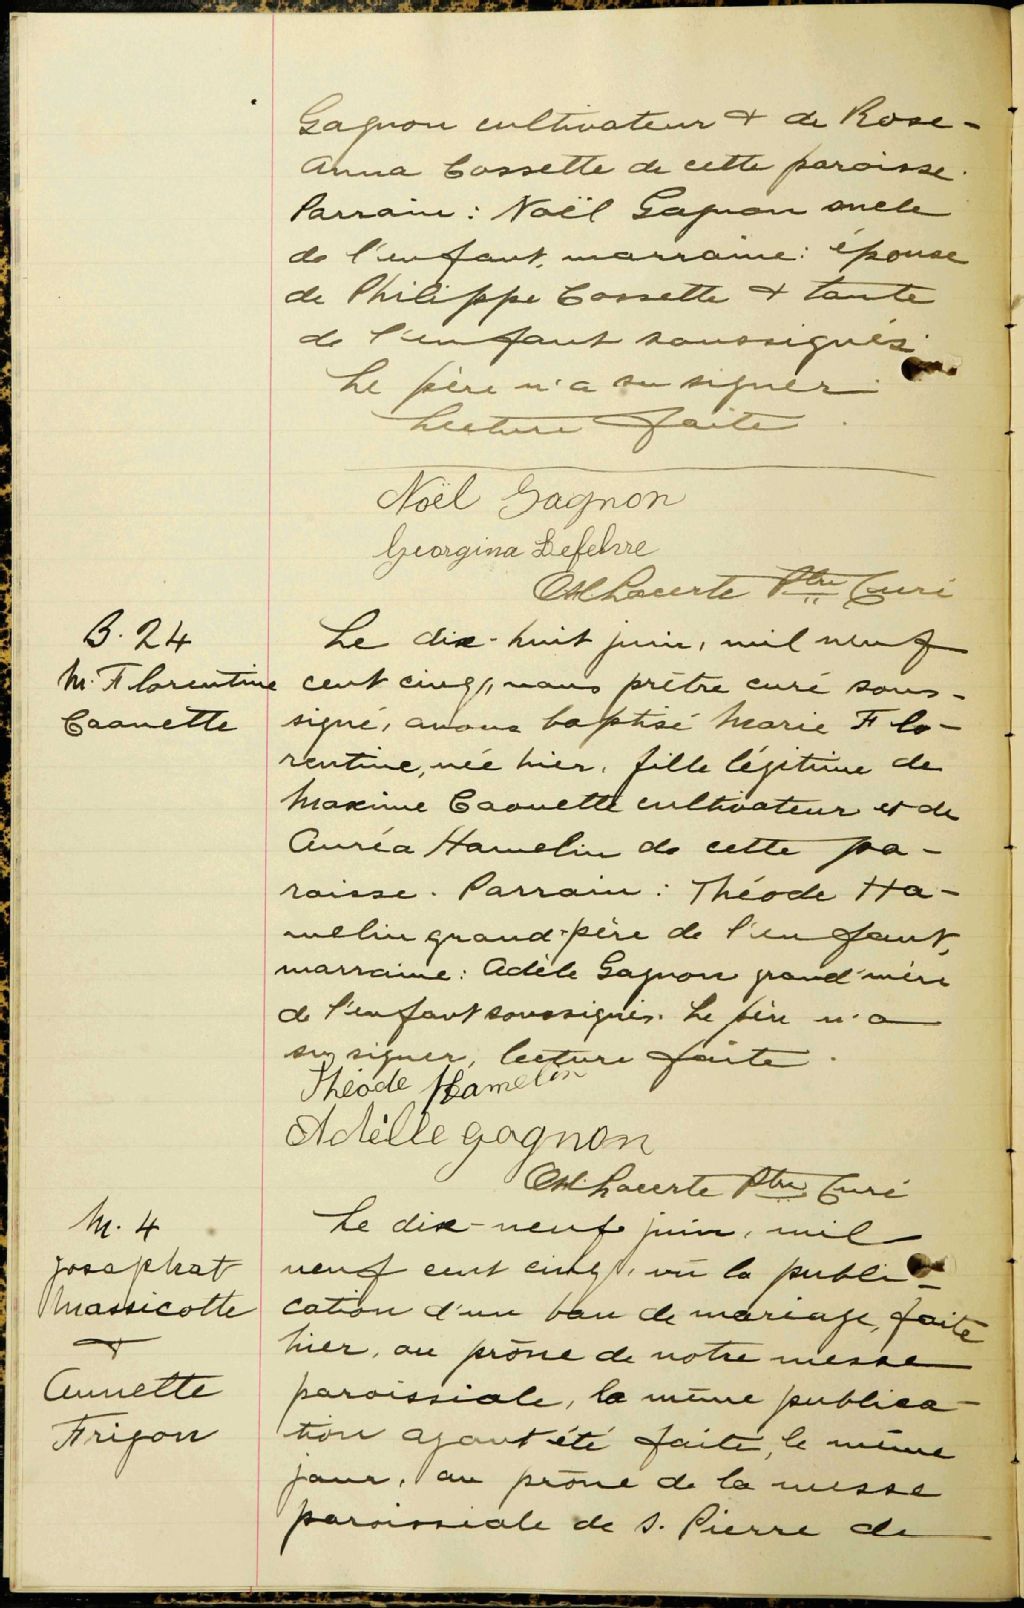 Gagnon cultivateur & de Rose-
Anna Cossette de cette paroisse.
Parrain : Noël Gagnon oncle
de l'enfant, marraine : épouse
de Philippe Cossette & tante
de l'enfant soussignés.
Le père n'a su signer.
Lecture faite.
Noël Gagnon
Georgina Lefebvre
Lacerte Ptre Curé
B. 24
M. Florentine
Caouette
Le dix-huit juin, mil neuf
cent cinq, nous prêtre curé sous-
signé, avons baptisé Marie Flo-
rentine, née hier, fille légitime de
Maxime Caouette cultivateur et de
Auréa Hamelin de cette pa-
roisse. Parrain : Théode Ha-
melin grand-père de l'enfant,
marraine : Adèle Gagnon grand'mère
de l'enfant soussignés. Le père n'a
su signer, lecture faite.
Théode Hamelin
Adèlle gagnon
Lacerte Ptre Curé
M. 4
Josaphat
Massicotte
&
Annette
Frigon
Le dix-neuf juin, mil
neuf cent cinq, vû la publi-
cation d'un ban de mariage, faite
hier, au prône de notre messe
paroissiale, la même publica-
tion ayant été faite, le même
jour, au prône de la messe
paroissiale de S. Pierre de